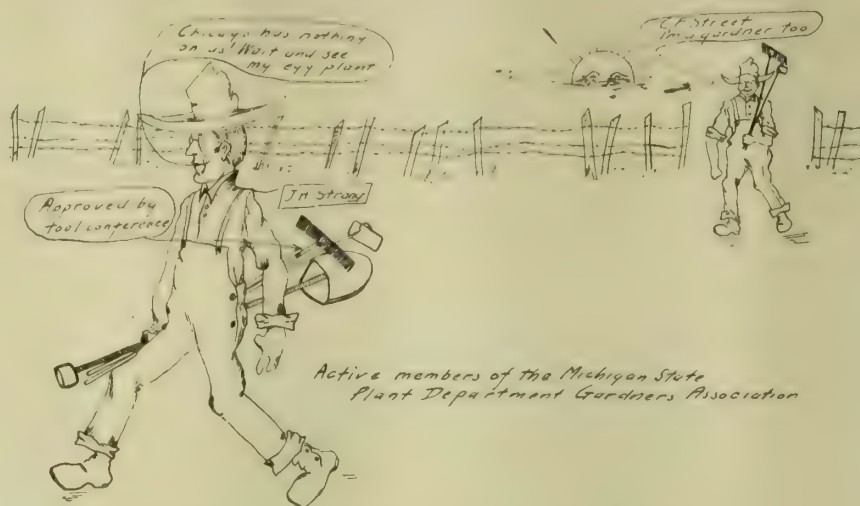 Chicago has nothing
on us! Wait and see
my egg plant
CF Street
Im a gardner too
Approved by
tool conference
JM Strong
Active members of the Michigan State
Plant Department Gardners Association